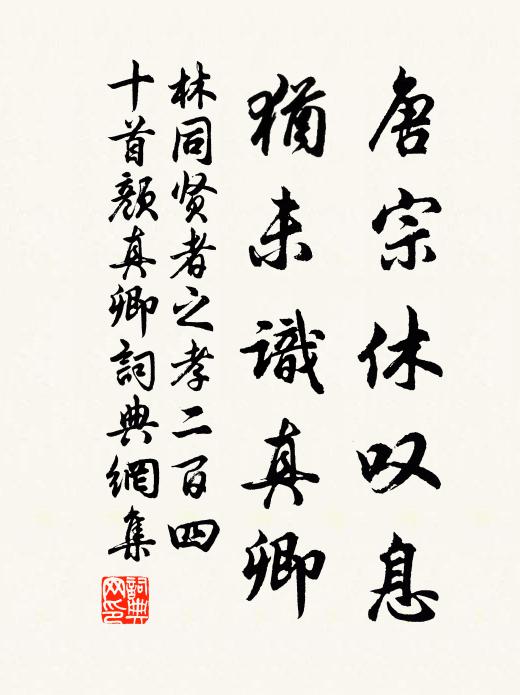 唐宗休叹息
猶未識真卿
林同贤者之孝二百四
十首顏真卿詞典網集
詞典
网印